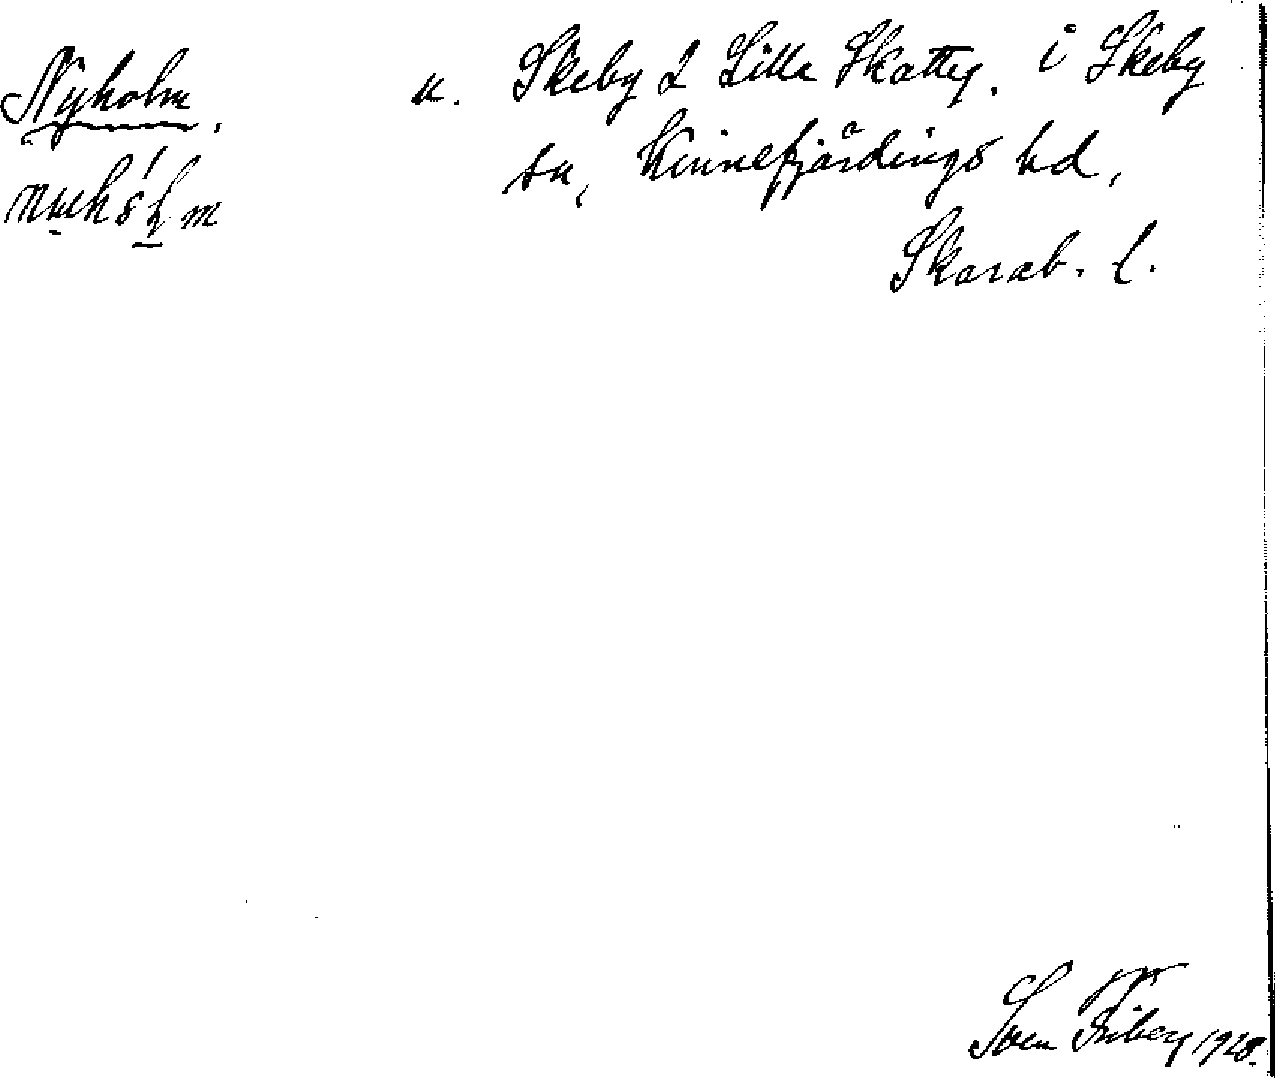 Nyholm. u. Skeby 2 Lilla Skatteg. i Skeby
sn, Kinnefjärdings hd,
Skarab. l.
Sven Friberg 1928.